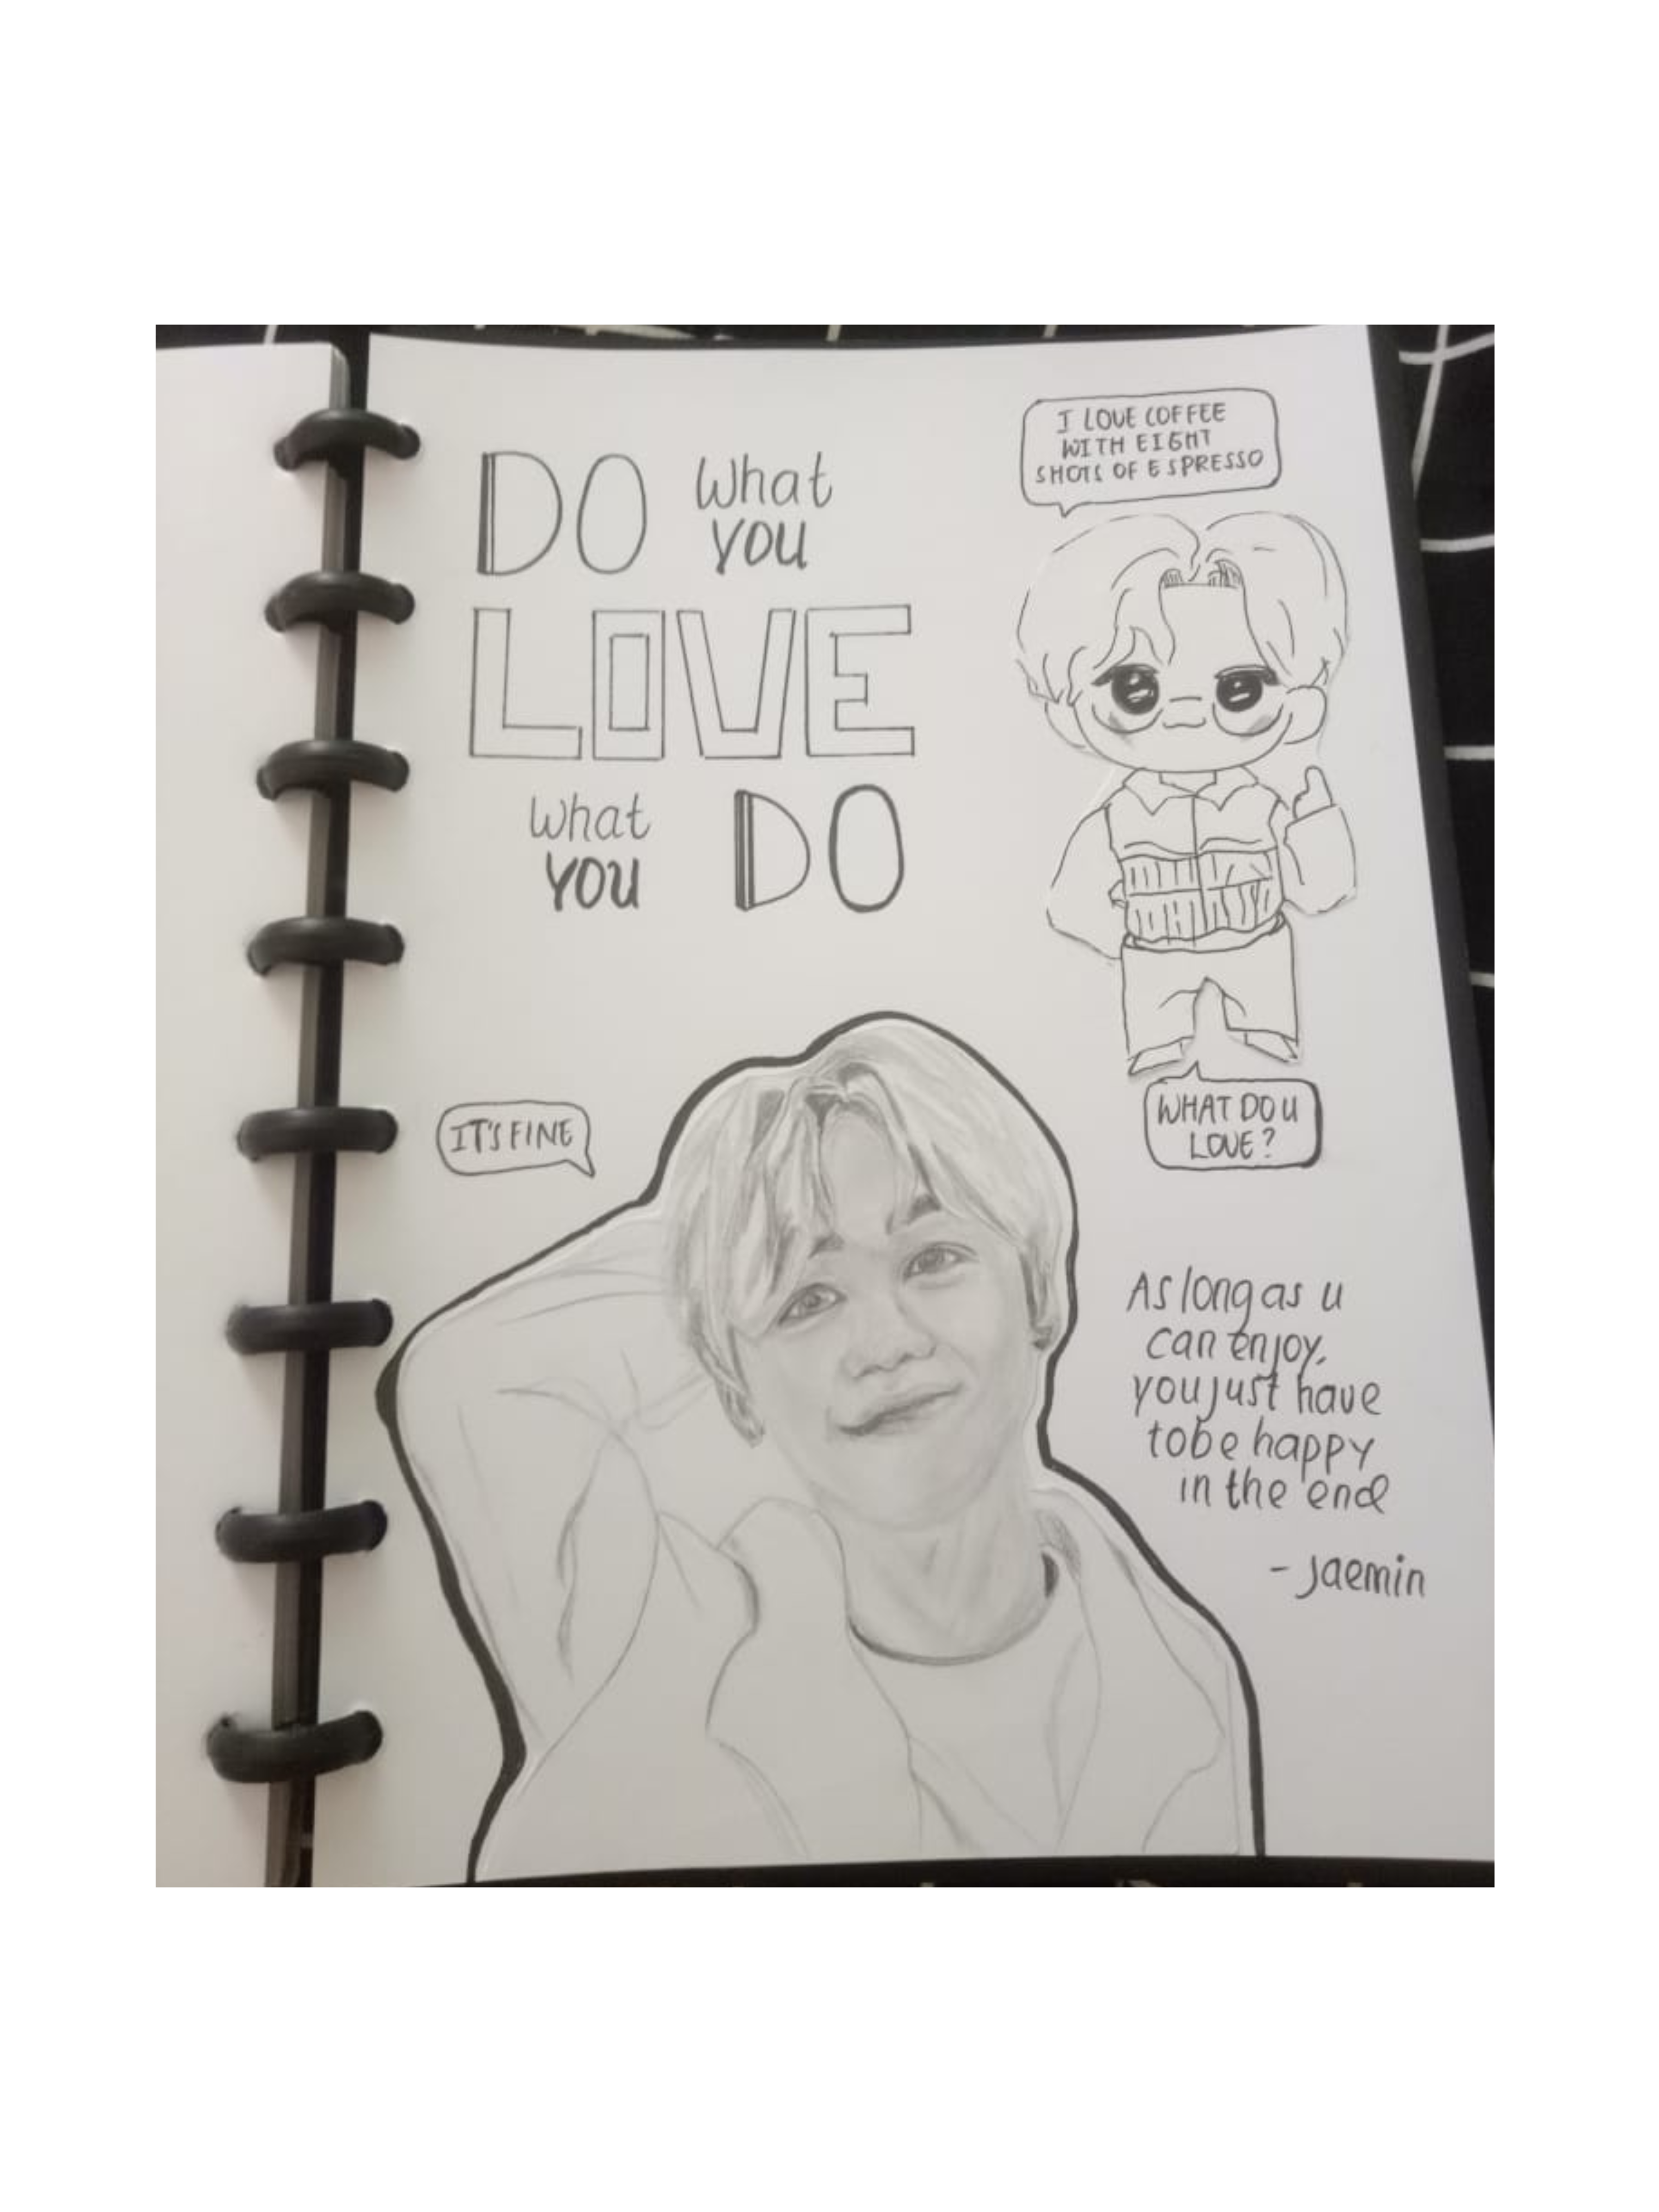 DO What
YOU
LOVE
What
YOU DO
I LOVE COFFEE
WITH EIGHT
SHOTS OF ESPRESSO
WHAT DO U
LOVE?
IT'S FINE
As long as u
can enjoy,
you just have
to be happy
in the end
- Jaemin